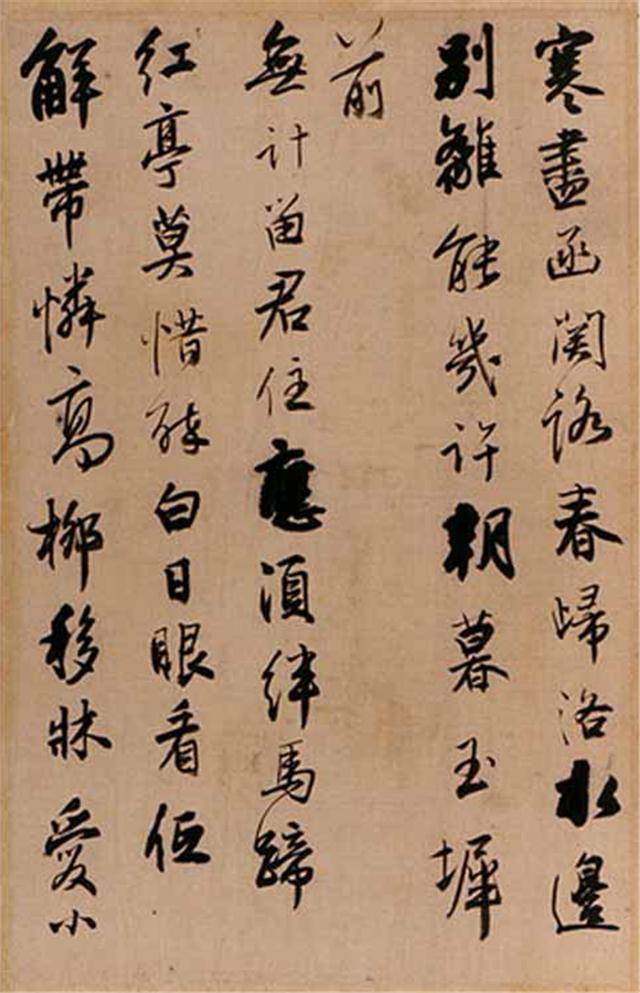 寒盡函関路春歸洛水邊
別離能幾許朝暮玉墀
前
無計留君住應須絆馬蹄
红亭莫惜醉白日眼看低
解帶憐高柳移牀愛小